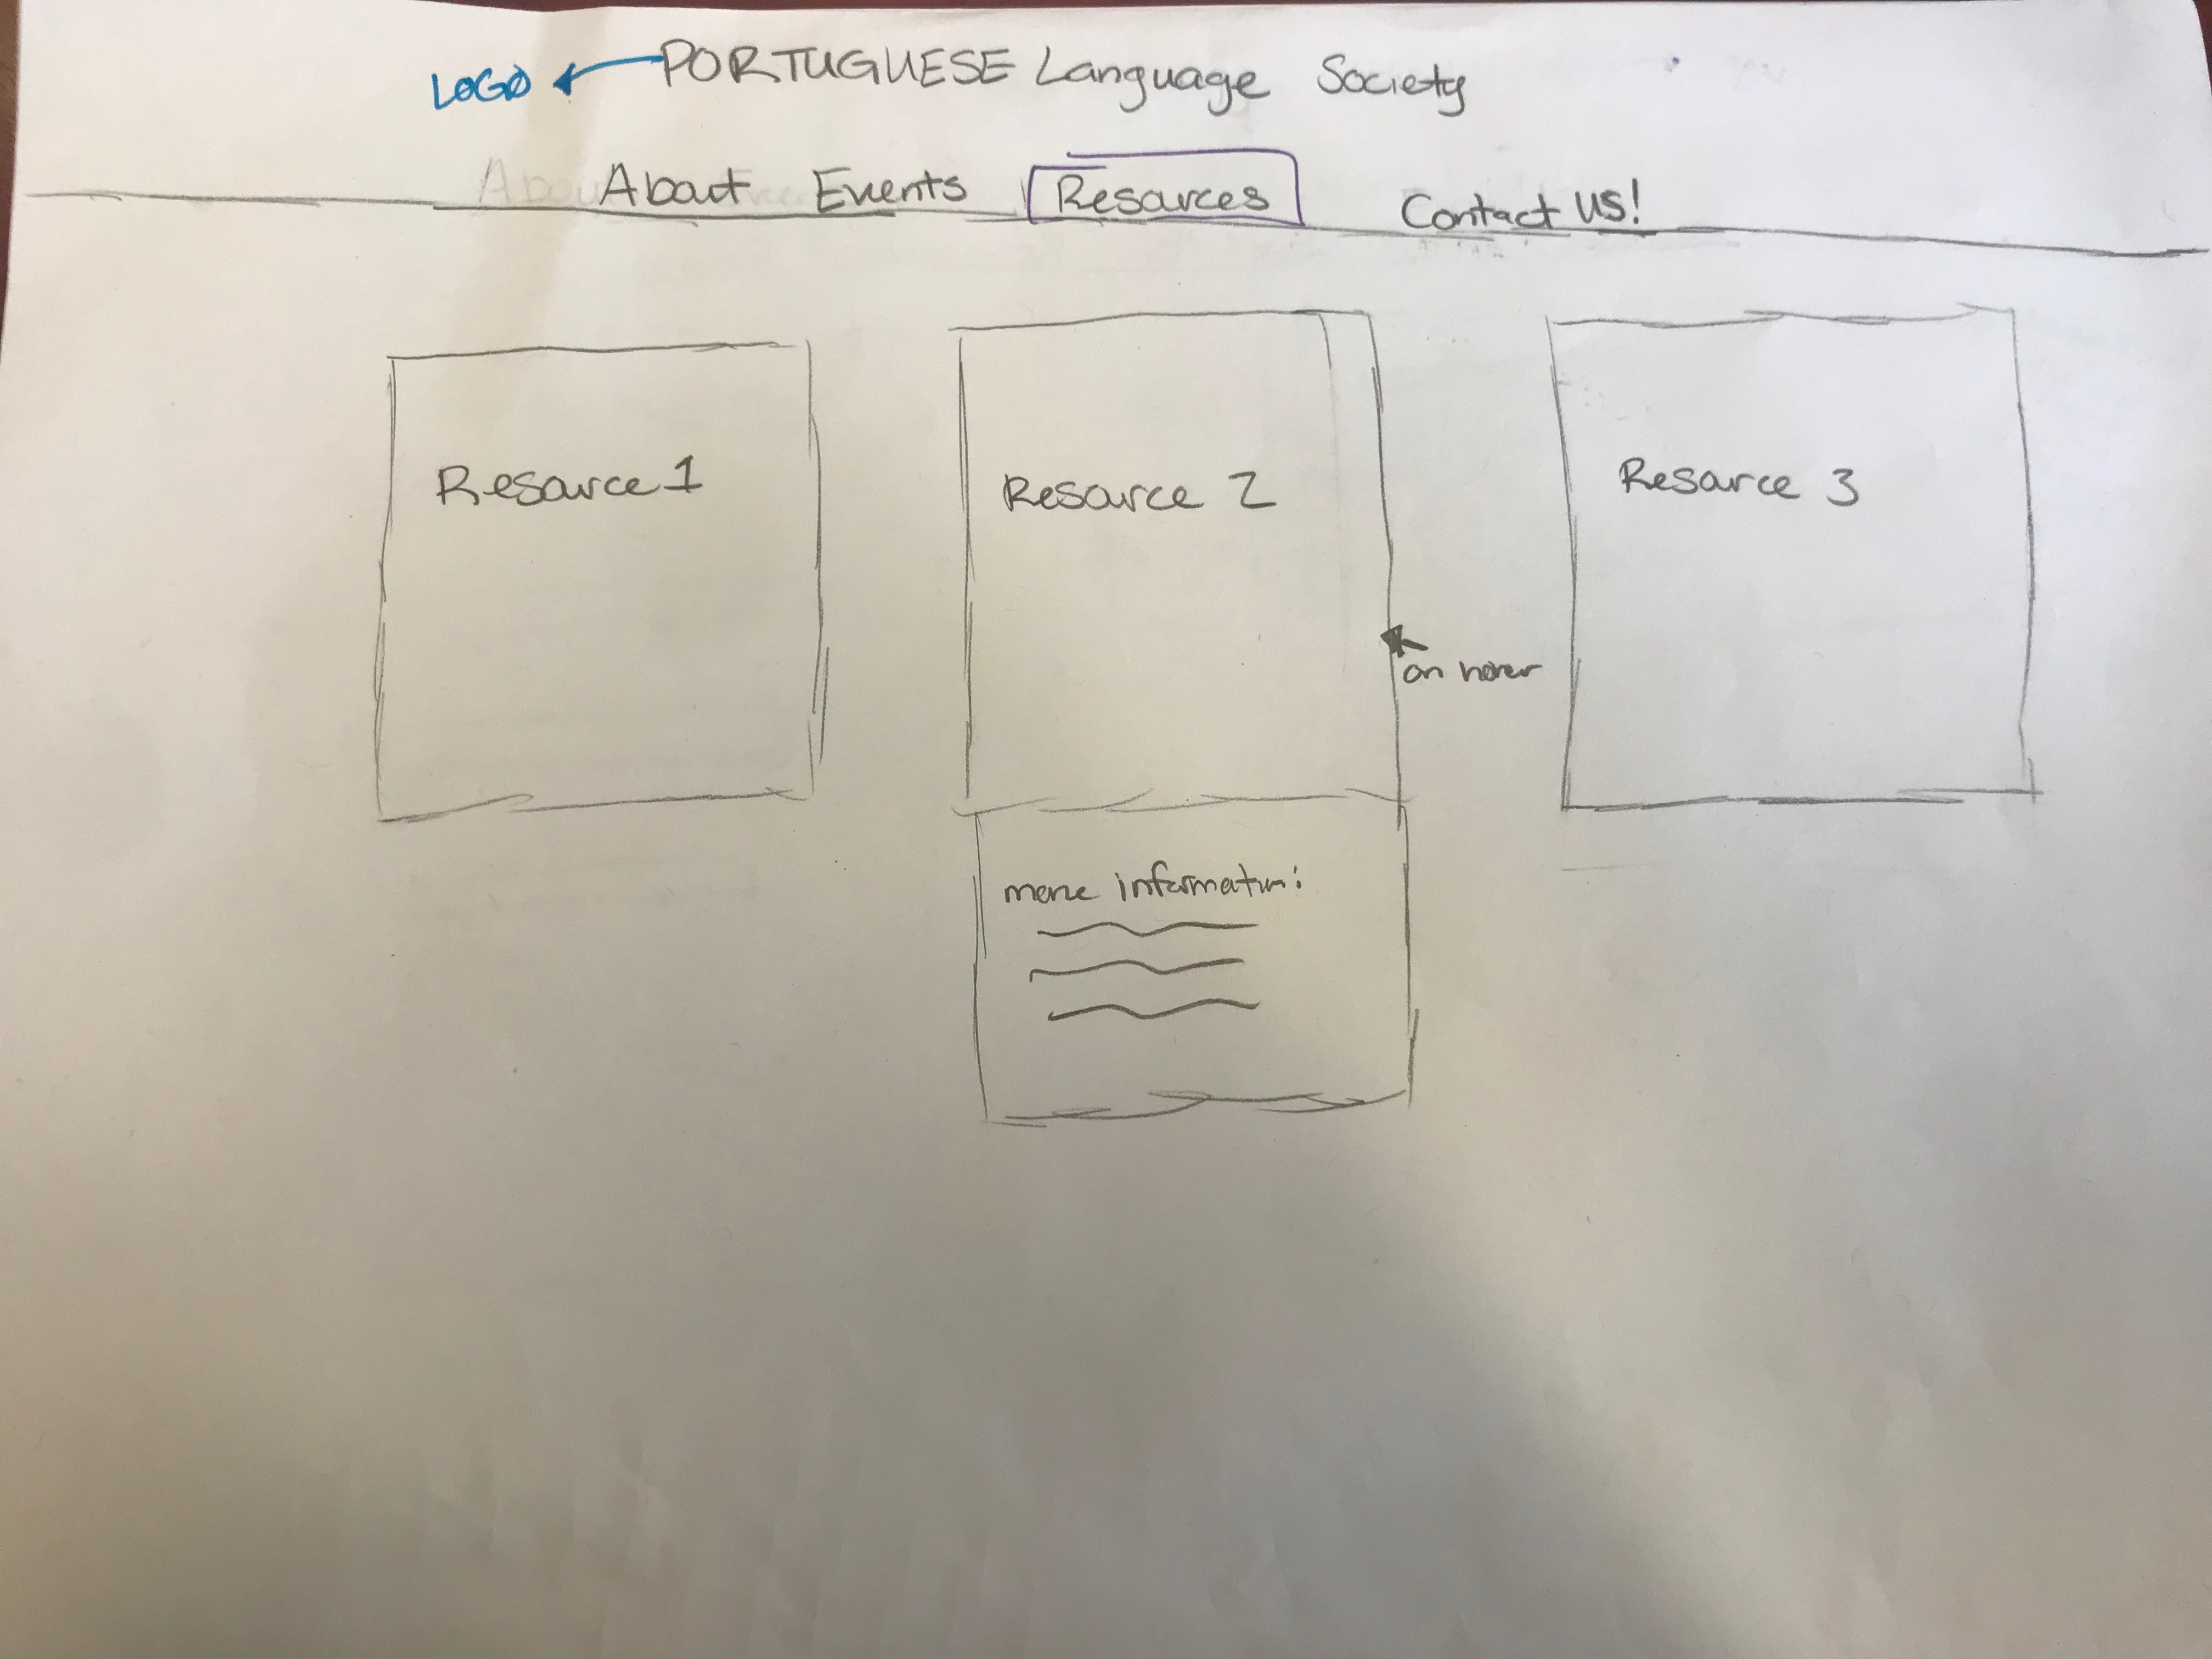 LOGO PORTUGUESE Language Society
About Events Resources Contact US!
Resource 1 Resource 2 Resource 3
on hover
more information: